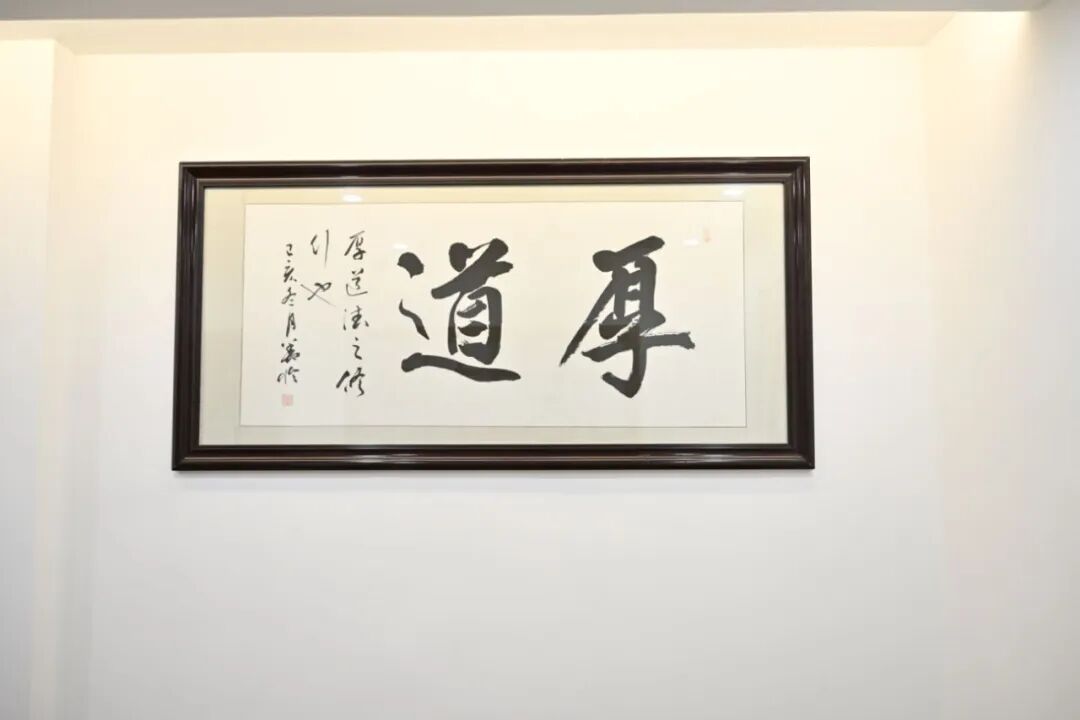 厚道
厚道德之修
行也
己亥冬月